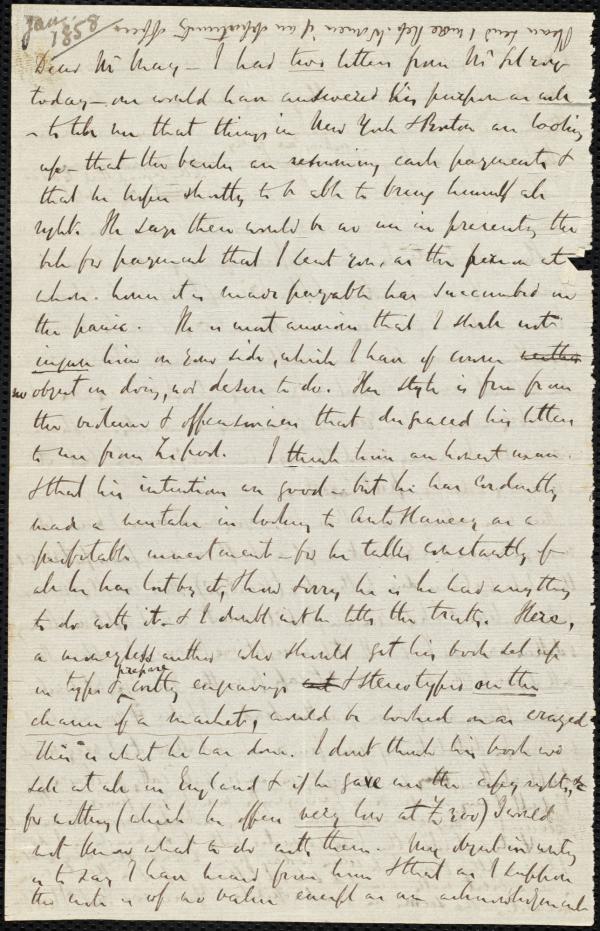 Jan. 1858
Please send 1 more Rep. Women if an opportunity offers
Dear Mr May - I had two letters from Mr
today - one would have answered his purpose as well
- to tell me that things in New York & Boston are looking
up - that the banks are resuming cash payments &
that he hopes shortly to be able to bring himself all
right. He says there would be no use in presenting the
bill for payment that I sent you, as the person at
whose house it is made payable has succumbed in
the panic. He is most anxious that I shall not
injure him on your side, which I have of course
no object in doing, nor desire to do. His style is free from
the violence & offensiveness that disgraced his letters
to me from L'pool. I think him an honest man
& that his intentions are good - but he has evidently
made a mistake in looking to Anti Slavery as a
profitable investment - for he talks constantly of
all he has lost by it, & how sorry he is he had anything
to do with it - & I doubt not he tells the truth. Here,
a moneyless author who should get his book set up
in type & prepare costly engravings & stereotypes on the
chance of a market, would be looked on as crazed
this is what he has done. I don't think his book wd
sell at all in England & if he gave me the copyright, &c
for nothing (which he offers very low at £200) I would
not know what to do with them. My object in writing
is to say I have heard from him & that as I suppose
the bill is of no value except as an acknowledgment